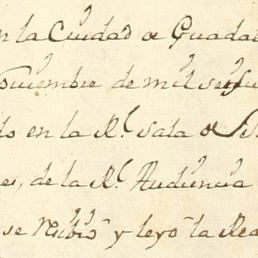 n la Ciudad de Guada
oviembre de mil setesu
do en la Rl. sala de
es, de la Rl. Audiencia
se rubio y leyo la Rea